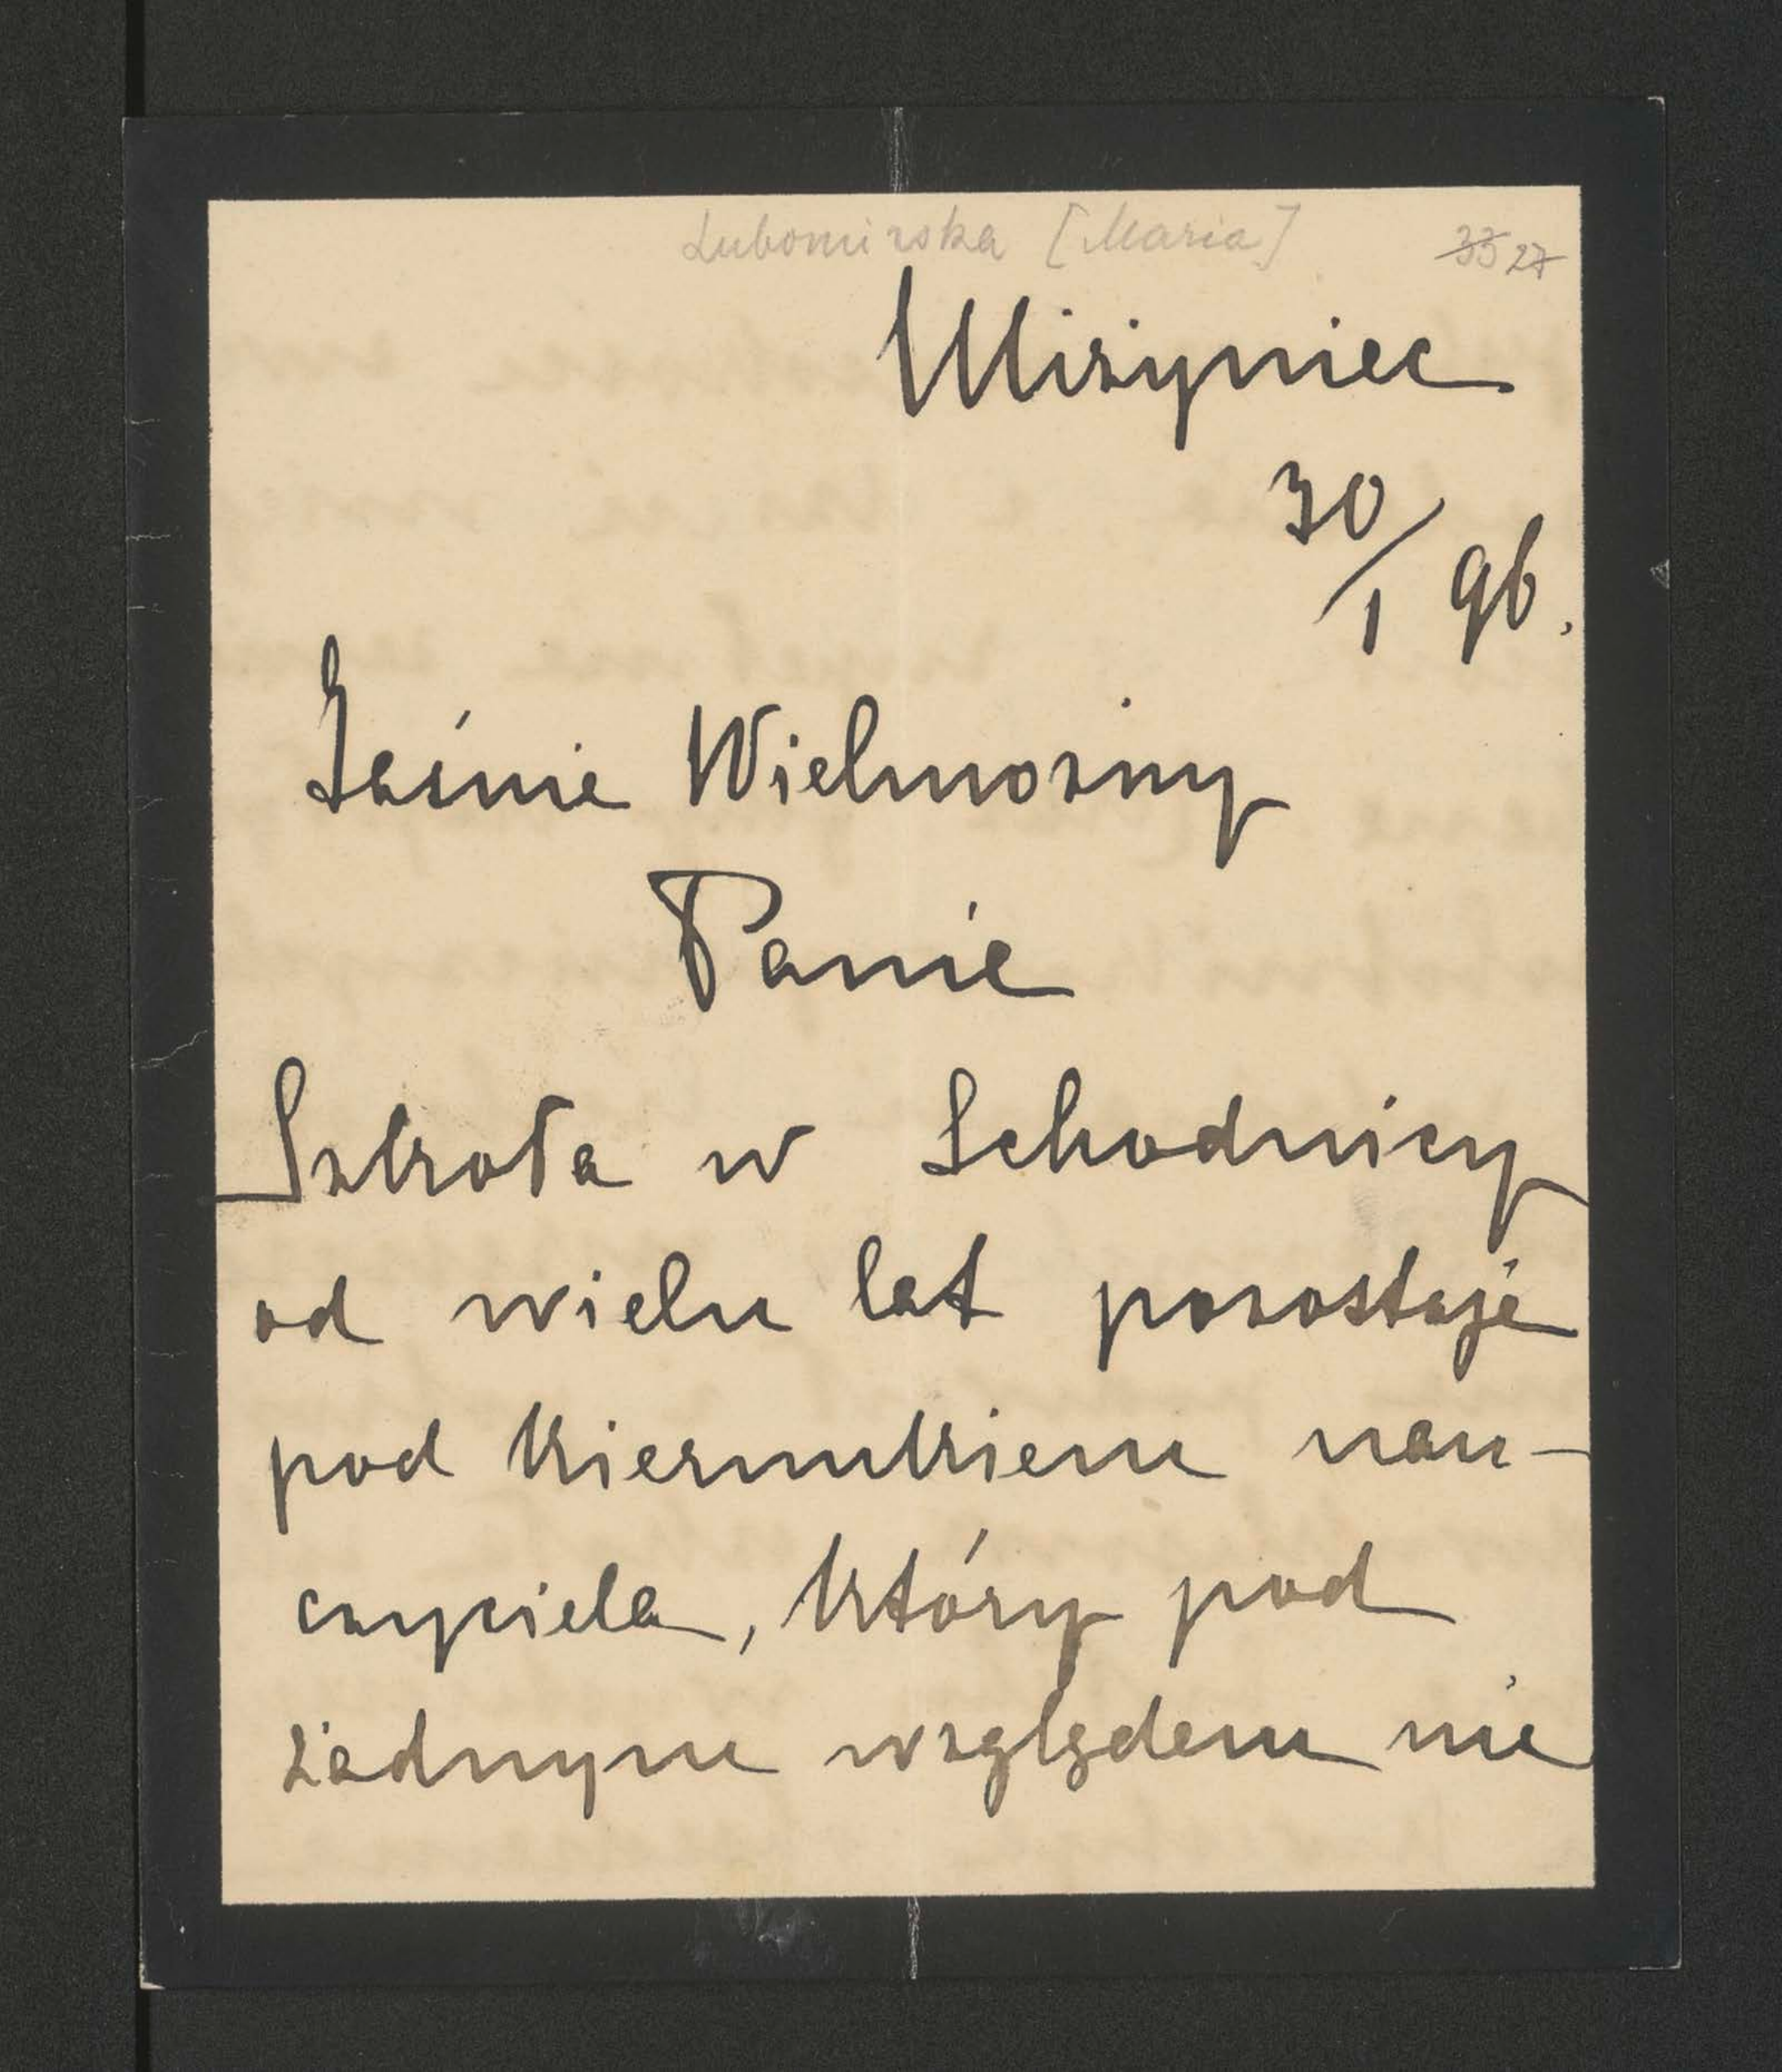 Lubomirska [Maria] 33 27
Miżyniec
30/1 96.
Jaśnie Wielmożny
Panie
Szkoła w Schodnicy
od wielu lat pozostaje
pod kierunkiem nau-
czyciela, który pod
żadnym względem nie